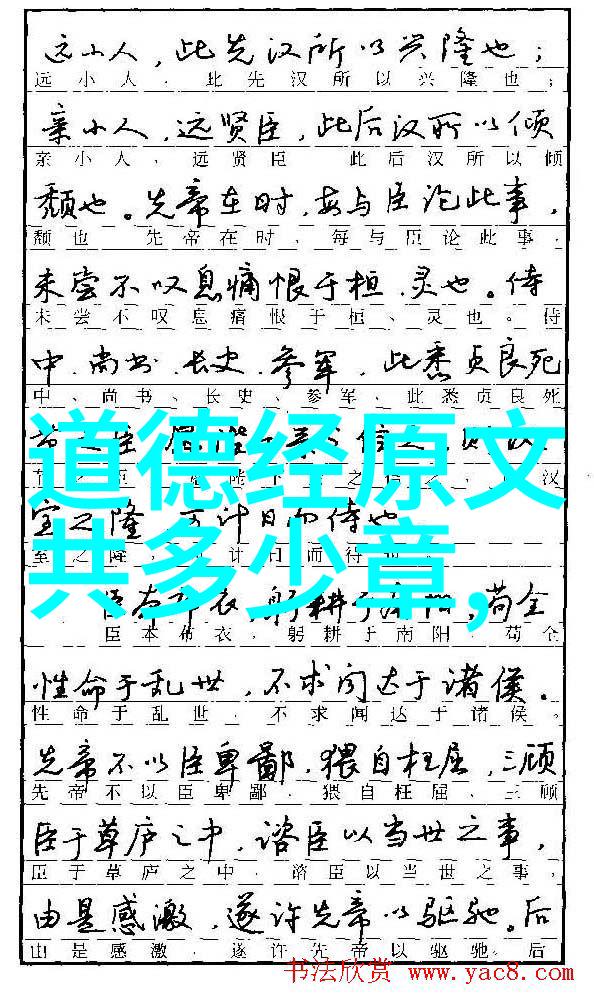 远小人，此先汉所以兴隆也；
远小人，此先汉所以兴隆也；
亲小人，远贤臣，此后汉所以倾
亲小人，远贤臣 此后汉所以倾
颓也。先帝在时，每与臣论此事，
颓也 先帝在时，每与臣论此事，
未尝不叹息痛恨于桓、灵也。侍
未尝不叹息痛恨于桓、灵也。侍
中、尚书、长史、参军，此悉贞良死
中、尚书、长史、参军、此悉贞良死
道德经原文
共多少章，
室之隆，可计日而待也
臣本布衣，躬耕于南阳，苟全
臣本布衣，躬耕于南阳，苟全
性命于乱世，不求闻达于诸侯。
性命于乱世，不求闻达于诸侯。
先帝不以臣卑鄙，猥自枉屈，三顾
先帝不以臣卑鄙，猥自枉屈、三顾
臣于草庐之中，谘臣以当世之事，
臣于草庐之中，谘臣以当世之事，
由是感激，遂许先帝以驱驰。后
由是感激，遂许先帝以驱驰。后
书法欣赏 www.yac8.com